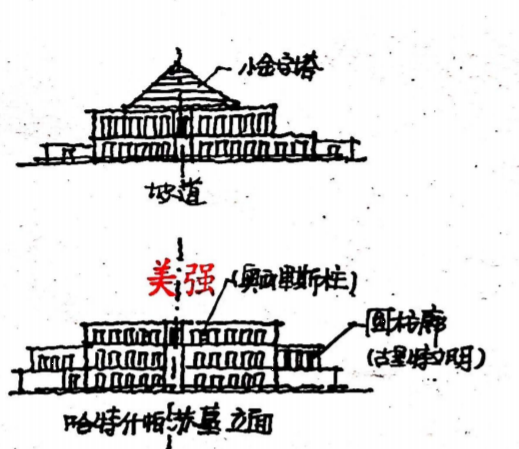 小金字塔
坡道
美强
(奥西里斯柱)
圆柱廊
(古里特明)
哈特什帕苏墓立面